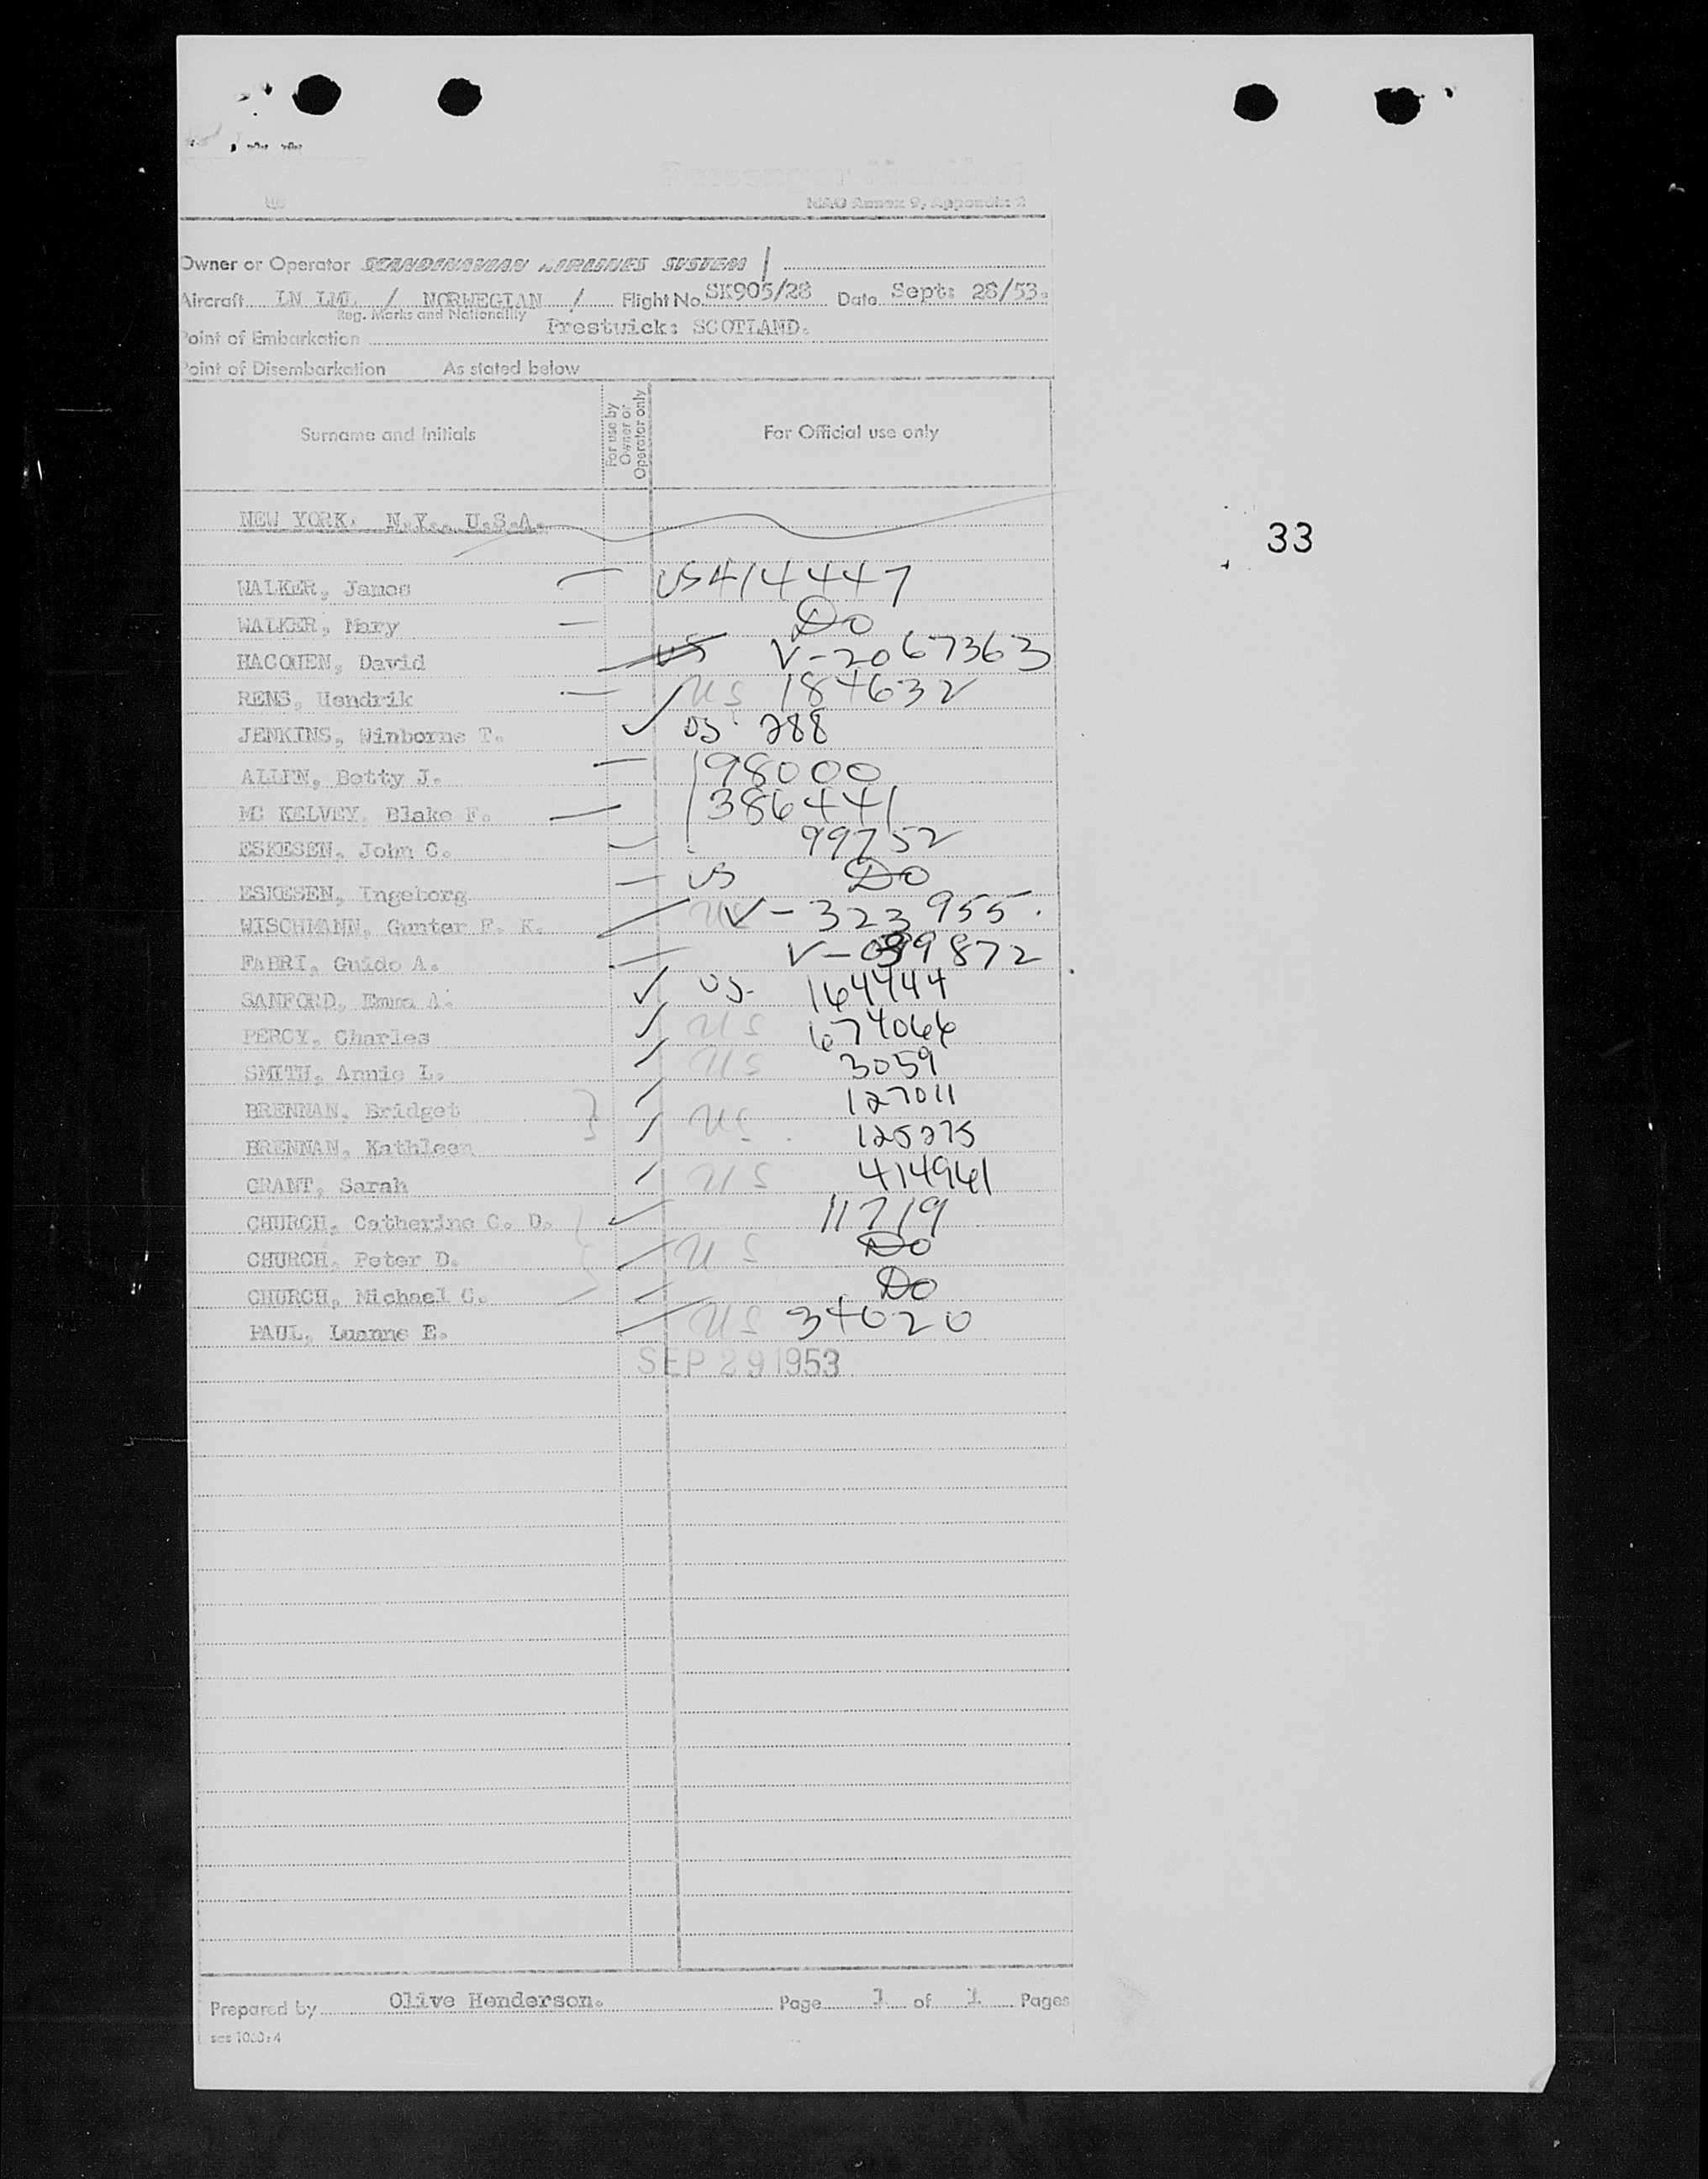 ICAO Annex 9, Appendix 2
Owner or Operator SCANDINAVIAN AIRLINES SYSTEM
Aircraft LN LML / NORWEGIAN / Flight No. SK905/28 Date Sept: 28/53.
Reg. Marks and Nationality
Point of Embarkation Prestwick: SCOTLAND.
Point of Disembarkation As stated below
Surname and Initials For use by Owner or Operator only For Official use only
NEW YORK. N.Y.. U.S.A.
33
WALKER, James US 414447
WALKER, Mary Do
HACOHEN, David US V-2067363
RENS, Hendrik US 184632
JENKINS, Winborne T. US 288
ALLEN, Betty J. 98000
MC KELVEY, Blake F. 386441
ESKESEN, John C. 99752
ESKESEN, Ingeborg US Do
WISCHMANN, Gunter F. K. US V-323955.
FABRI, Guido A. V-099872
SANFORD, Emma A. US. 164444
PERCY, Charles US 674066
SMITH, Annie L. US 3059
BRENNAN, Bridget 127011
BRENNAN, Kathleen US. 125275
GRANT, Sarah US 414961
CHURCH, Catherine C. D. 11719
CHURCH, Peter D. US Do
CHURCH, Michael C. Do
PAUL, Luanne E. US 34020
SEP 29 1953
Prepared by Olive Henderson. Page 1 of 1 Pages